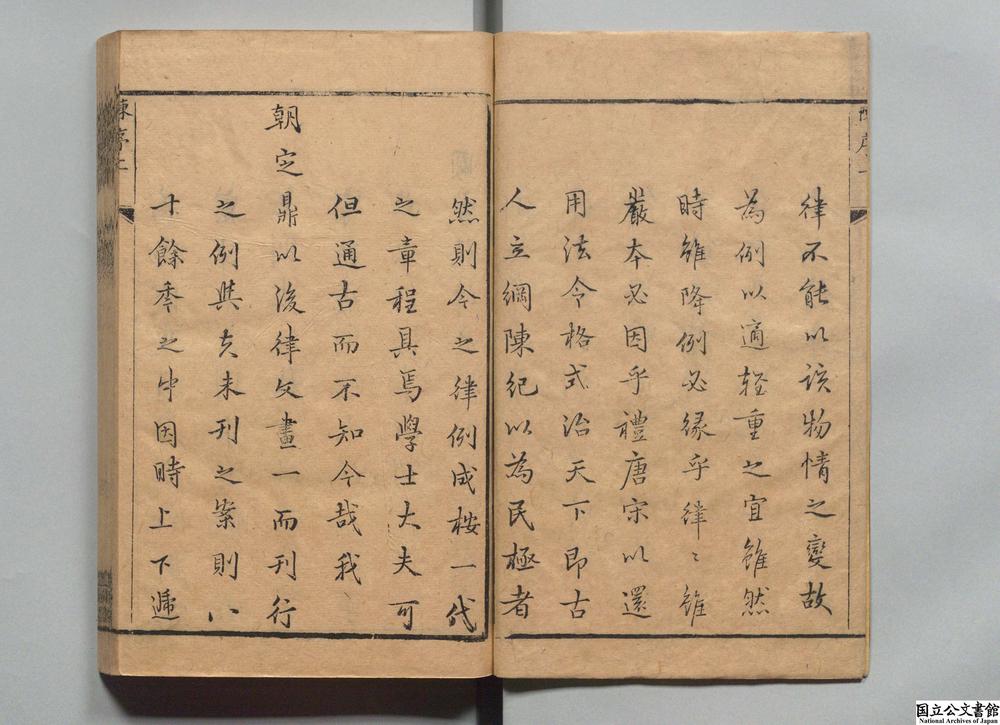 律不能以該物情之變故
為例以適輕重之宜雖然
時雖降例必緣乎律〻雖
嚴本必因乎禮唐宋以還
用法令格式治天下即古
人立綱陳紀以為民極者
然則今之律例成桉一代
之章程具焉學士大夫可
但通古而不知今哉我
朝定
鼎以後律文畫一而刊行
之例與夫未刊之案則八
十餘年之中因時上下遞
陳序二
国立公文書館
National Archives of Japan